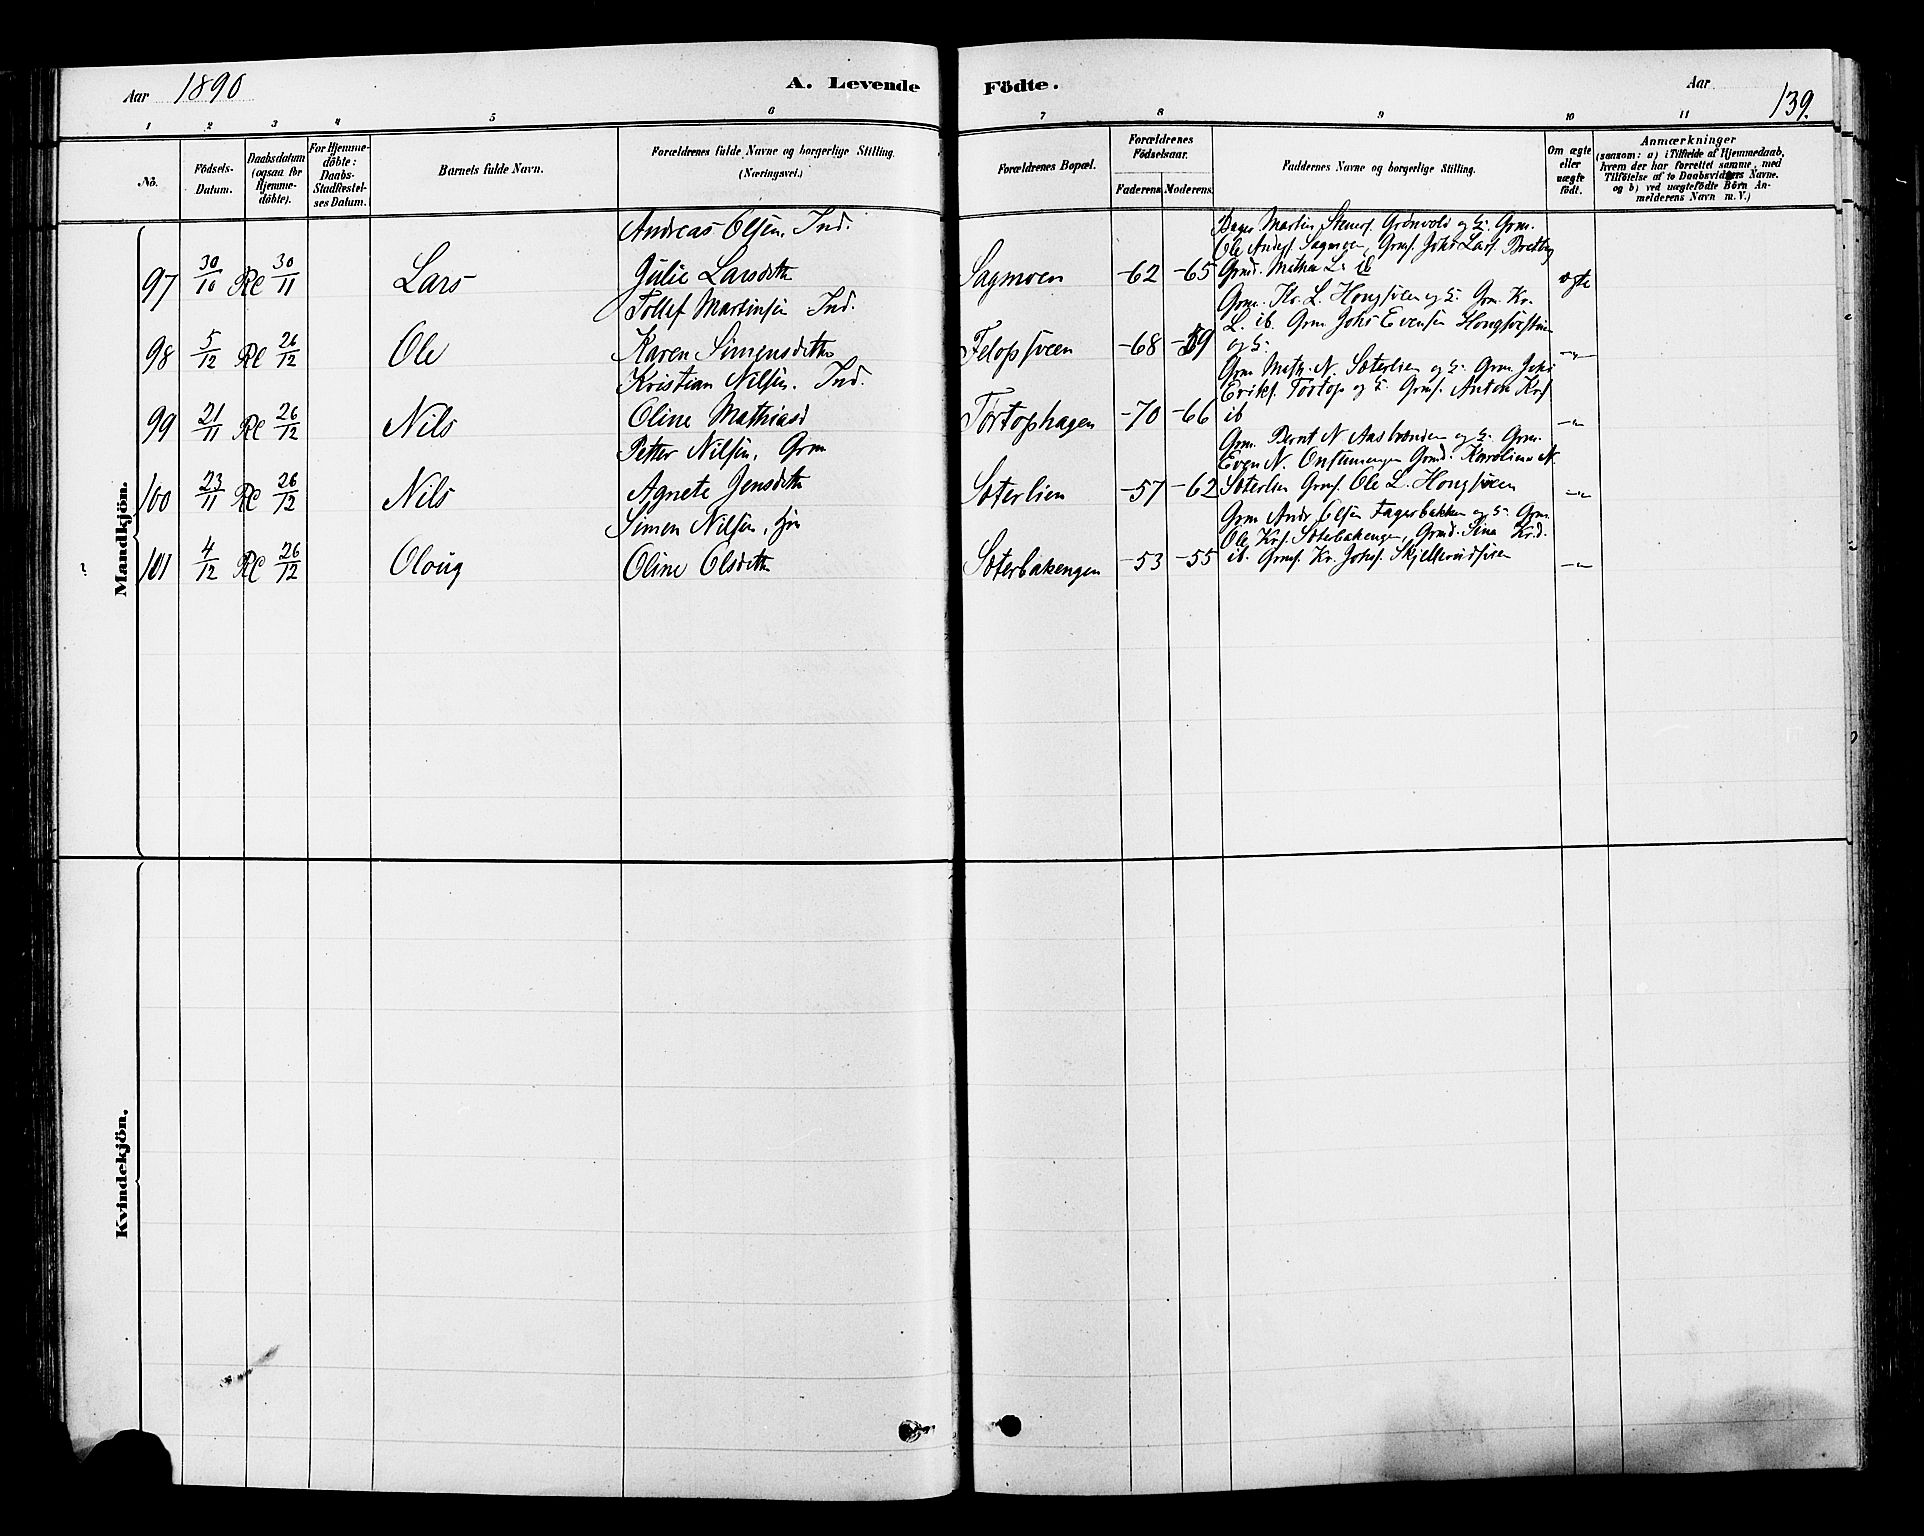 Aar 1890 A. Levende Födte. Aar 139.
1 2 3 4 5 6 7 8 9 10 11
No. Födsels-Datum. Daabsdatum (ogsaa for Hjemme-döbte). For Hjemme-döbte: Daabs-Stadfæstel-ses Datum. Barnets fulde Navn. Forældrenes fulde Navne og borgerlige Stilling. (Næringsvei.) Forældrenes Bopæl. Forældrenes Födselsaar. Faderens Moderens Faddernes Navne og borgerlige Stilling. Om ægte eller uægte födt. Anmærkninger (saasom: a) i Tilfælde af Hjemmedaab, hvem der har forrettet samme, med Tilföielse af to Daabsvidners Navne. og b) ved uægtefödte Börn An-melderens Navn m. V.)
Mandkjön.
Andreas Olsen. Ind. Martin Grønvold og Grm.
Ole Sagmoen, Johs Lars.
97 30/10 Rc 30/11 Lars Julie Larsdtr Sagmoen -62 -65 Grmd. Mathea L. ib ægte
Tollef Martinsen Ind. Grm. L. og Grm. Kr.
L. ib. Grm Johs Evensen
98 5/12 Rc 26/12 Ole Karen Simensdtr -68 -59 og -"-
Kristian Nilsen. Ind. Grm Math. N. Sæterlien og Grm. Johs
Eriks. Tørtop og Anton
99 21/11 Rc 26/12 Nils Oline Mathiasd Tørtophagen -70 -66 ib -"-
Petter Nilsen, Grm Grm. Bernt N. og Grm.
Even N. Grmd. Karoline N.
100 23/11 Rc 26/12 Nils Agnete Jensdtr Sæterlien -57 -62 Sæterlien Ole L. -"-
Simen Nilsen, Grm Andr Olsen Fagerbakken og Grm.
Ole Sæterbakengen, Grmd. Sina
101 4/12 Rc 26/12 Oloug Oline Olsdtr Sæterbakengen -53 -55 ib. Kr. Johs. -"-
Kvindekjön.